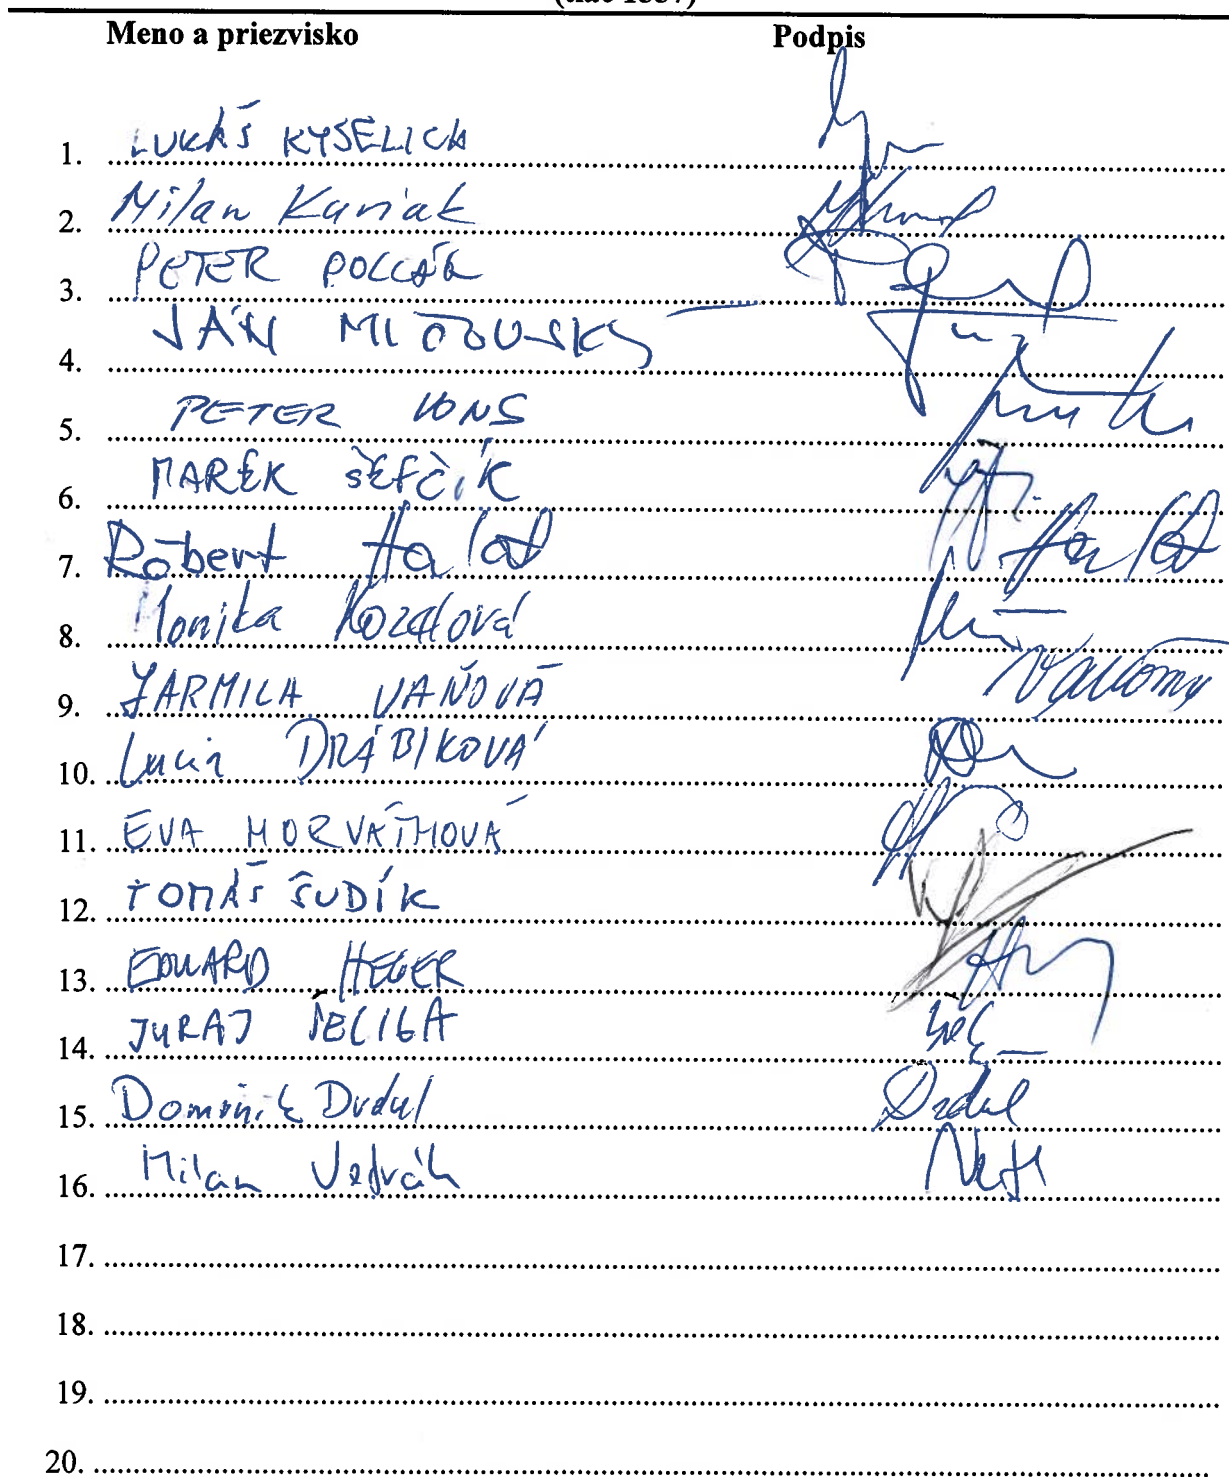 Meno a priezvisko Podpis
1. LUKÁŠ KYSELICA
2. Milan Kuriak
3. PETER POLLÁK
4. JÁN MIČOVSKÝ
5. PETER VONS
6. MAREK ŠEFČÍK
7. Róbert Halát Halát
8. Monika Kozelová
9. JARMILA VAŇOVÁ
10. Lucia DRÁBIKOVÁ
11. EVA HORVÁTHOVÁ
12. TOMÁŠ ŠUDÍK
13. EDUARD HEGER
14. JURAJ ŠELIGA
15. Dominik Drdul Drdul
16. Milan Vetrák
17.
18.
19.
20.